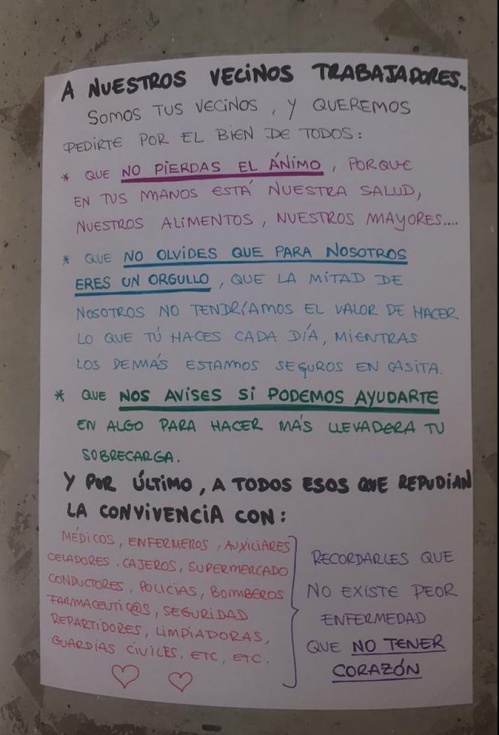 A NUESTROS VECINOS TRABAJADORES..
SOMOS TUS VECINOS, Y QUEREMOS
PEDIRTE POR EL BIEN DE TODOS:
* QUE NO PIERDAS EL ÁNIMO, PORQUE
EN TUS MANOS ESTÁ NUESTRA SALUD,
NUESTROS ALIMENTOS, NUESTROS MAYORES....
* QUE NO OLVIDES QUE PARA NOSOTROS
ERES UN ORGULLO, QUE LA MITAD DE
NOSOTROS NO TENDRÍAMOS EL VALOR DE HACER
LO QUE TÚ HACES CADA DÍA, MIENTRAS
LOS DEMÁS ESTAMOS SEGUROS EN CASITA.
* QUE NOS AVISES SI PODEMOS AYUDARTE
EN ALGO PARA HACER MÁS LLEVADERA TU
SOBRECARGA.
Y POR ÚLTIMO, A TODOS ESOS QUE REPUDIAN
LA CONVIVENCIA CON:
MÉDICOS, ENFERMEROS, AUXILIARES
CELADORES. CAJEROS, SUPERMERCADO
CONDUCTORES, POLICÍAS, BOMBEROS
FARMACEUTIC@S, SEGURIDAD
REPARTIDORES, LIMPIADORAS,
GUARDIAS CIVILES. ETC, ETC.
RECORDARLES QUE
NO EXISTE PEOR
ENFERMEDAD
QUE NO TENER
CORAZÓN